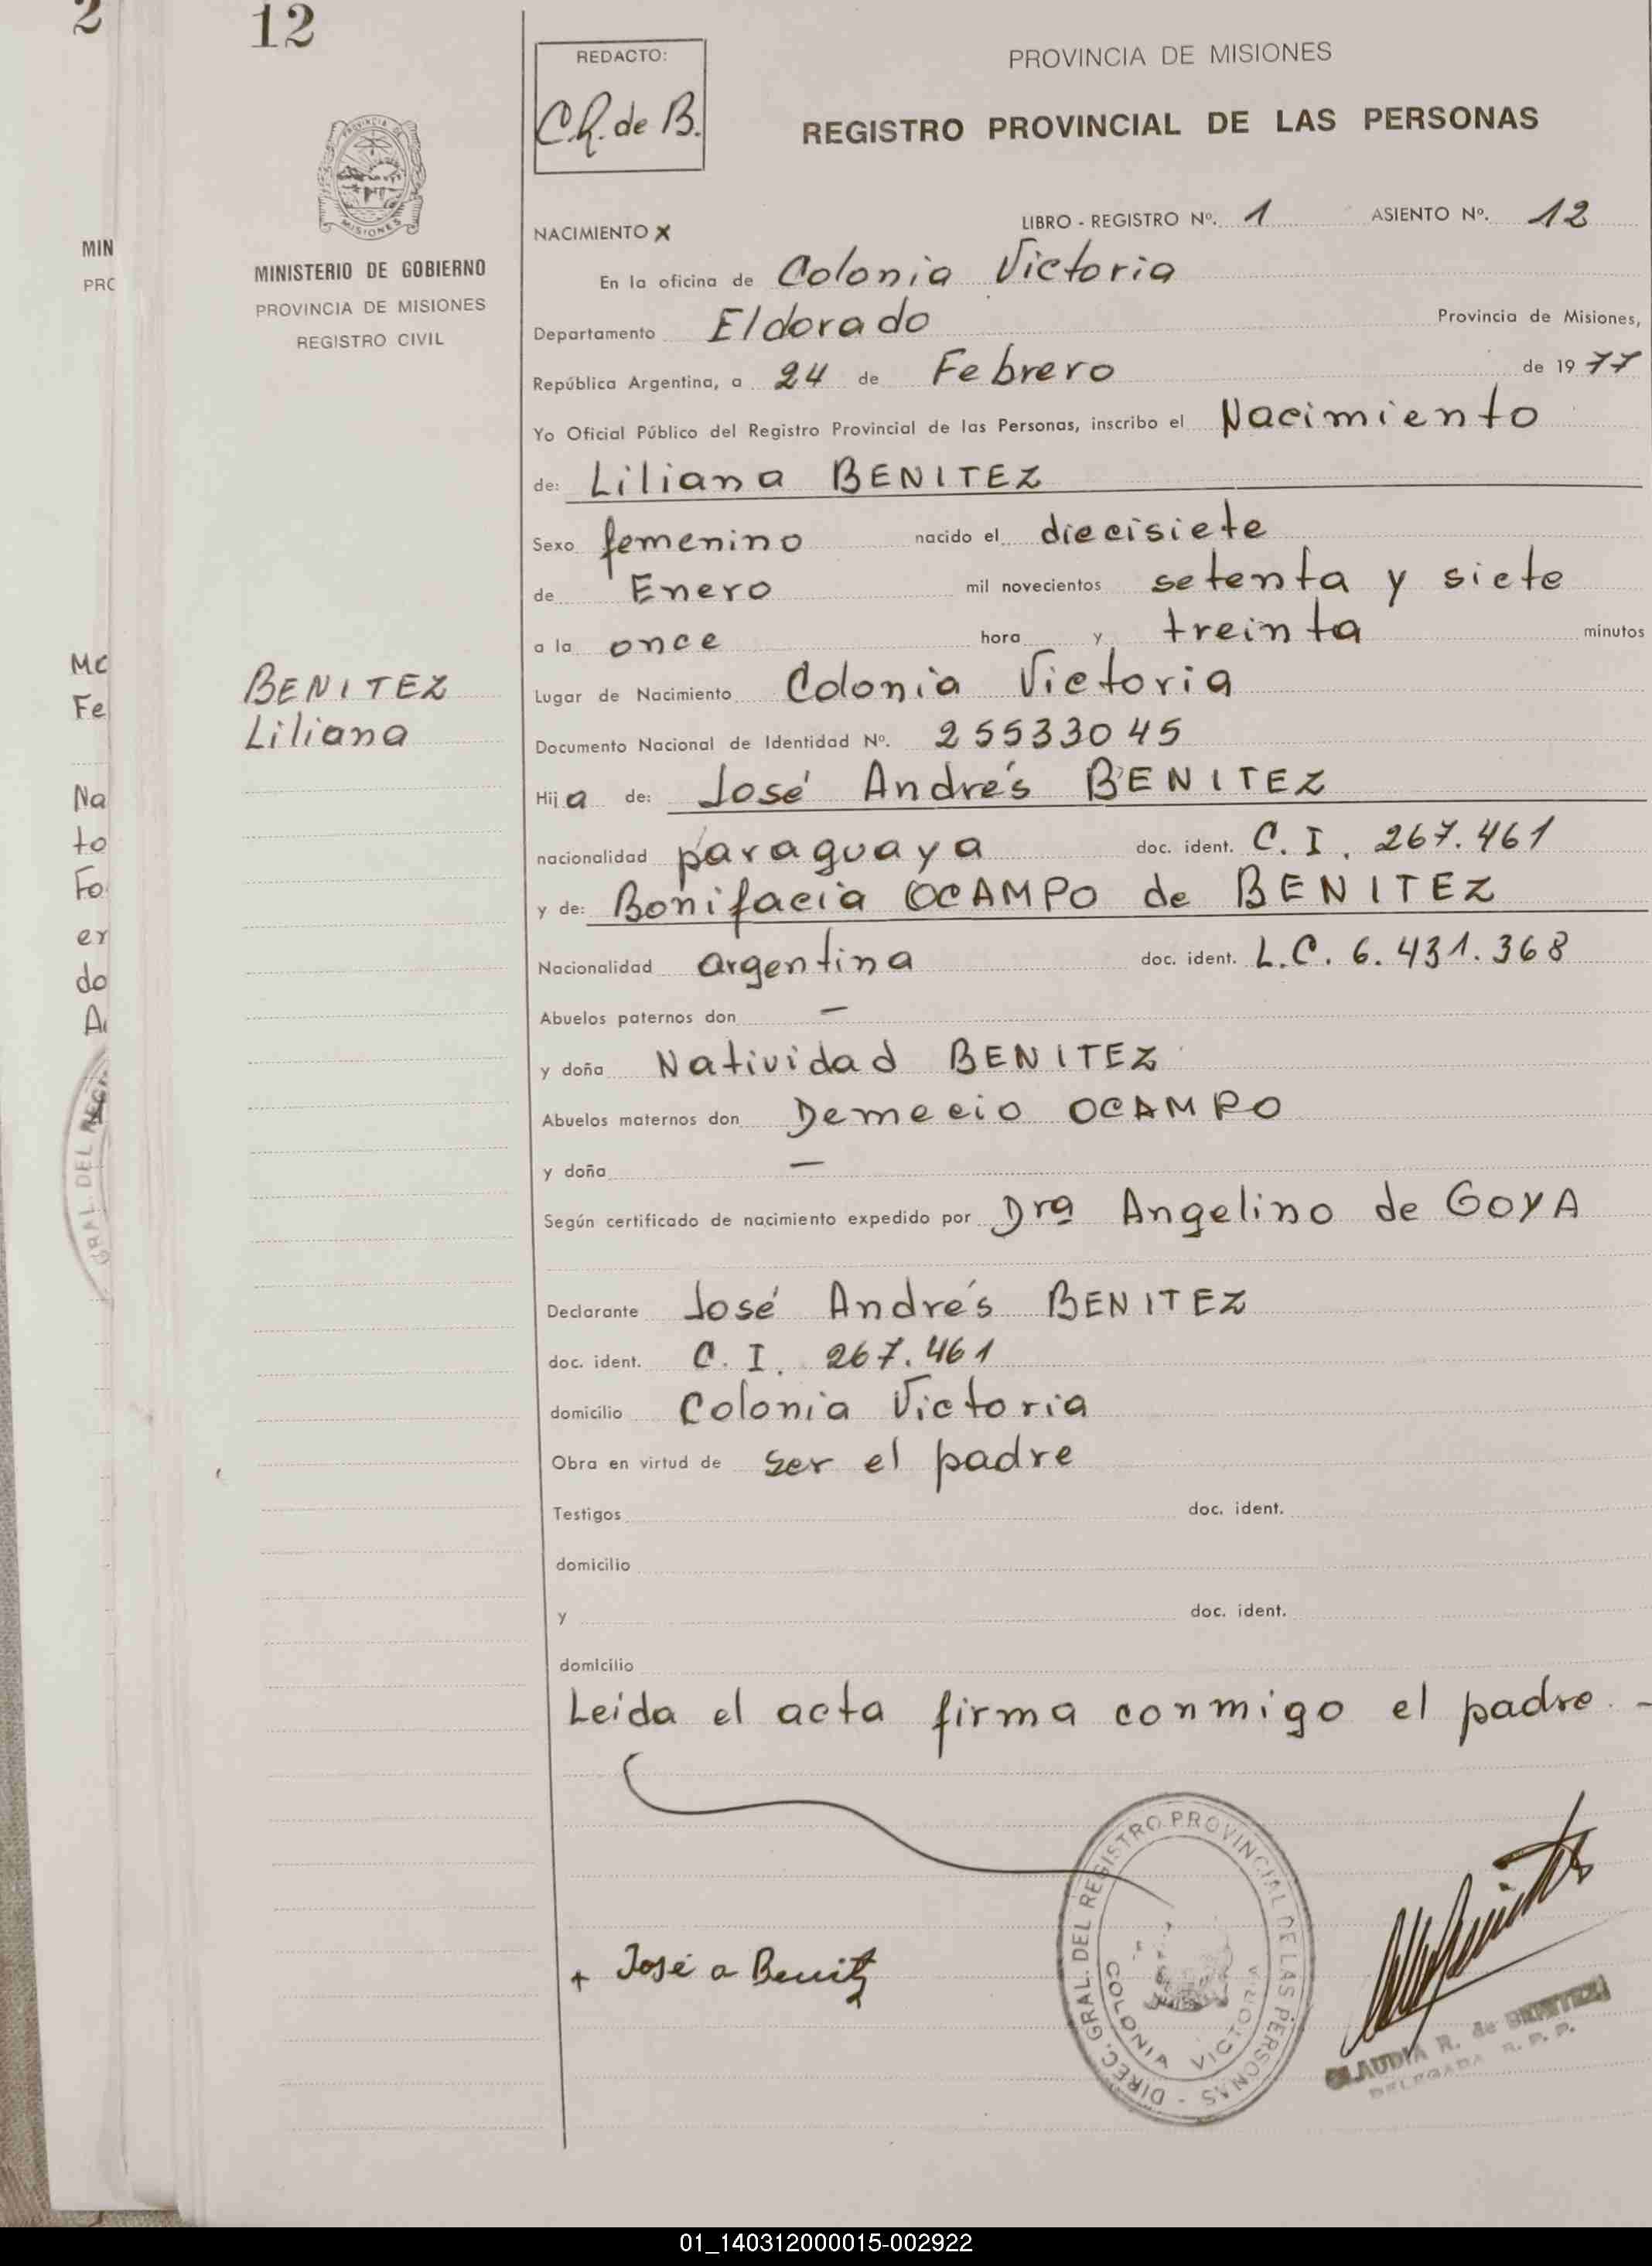 2
12
REDACTO:
C.R. de B.
PROVINCIA DE MISIONES
REGISTRO PROVINCIAL DE LAS PERSONAS
PROVINCIA DE
MISIONES
MINISTERIO DE GOBIERNO
PROVINCIA DE MISIONES
REGISTRO CIVIL
MIN
PRC
NACIMIENTO X
LIBRO - REGISTRO Nº. 1 ASIENTO Nº. 12
En la oficina de Colonia Victoria
Departamento Eldorado Provincia de Misiones,
República Argentina, a 24 de Febrero de 1977
Yo Oficial Público del Registro Provincial de las Personas, inscribo el Nacimiento
de: Liliana BENITEZ
Sexo femenino nacido el diecisiete
de Enero mil novecientos setenta y siete
a la once hora y treinta minutos
BENITEZ
Liliana
Lugar de Nacimiento Colonia Victoria
Documento Nacional de Identidad Nº. 25533045
Hija de: José Andrés BENITEZ
nacionalidad paraguaya doc. ident. C. I. 267.461
y de: Bonifacia OCAMPO de BENITEZ
Nacionalidad argentina doc. ident. L.C. 6.431.368
Abuelos paternos don —
y doña Natividad BENITEZ
Abuelos maternos don Demecio OCAMPO
y doña —
Según certificado de nacimiento expedido por Dra Angelino de GOYA
Declarante José Andrés BENITEZ
doc. ident. C. I. 267.461
domicilio Colonia Victoria
Obra en virtud de ser el padre
Testigos doc. ident.
domicilio
y doc. ident.
domicilio
Leída el acta firma conmigo el padre. -
+ José a Benitz
DIREC. GRAL. DEL REGISTRO PROVINCIAL DE LAS PERSONAS -
COLONIA VICTORIA
CLAUDIA R. de BENITEZ
DELEGADA R. P. P.
Mc
Fe
Na
to
Fo
er
do
GRAL. DEL
01_140312000015-002922